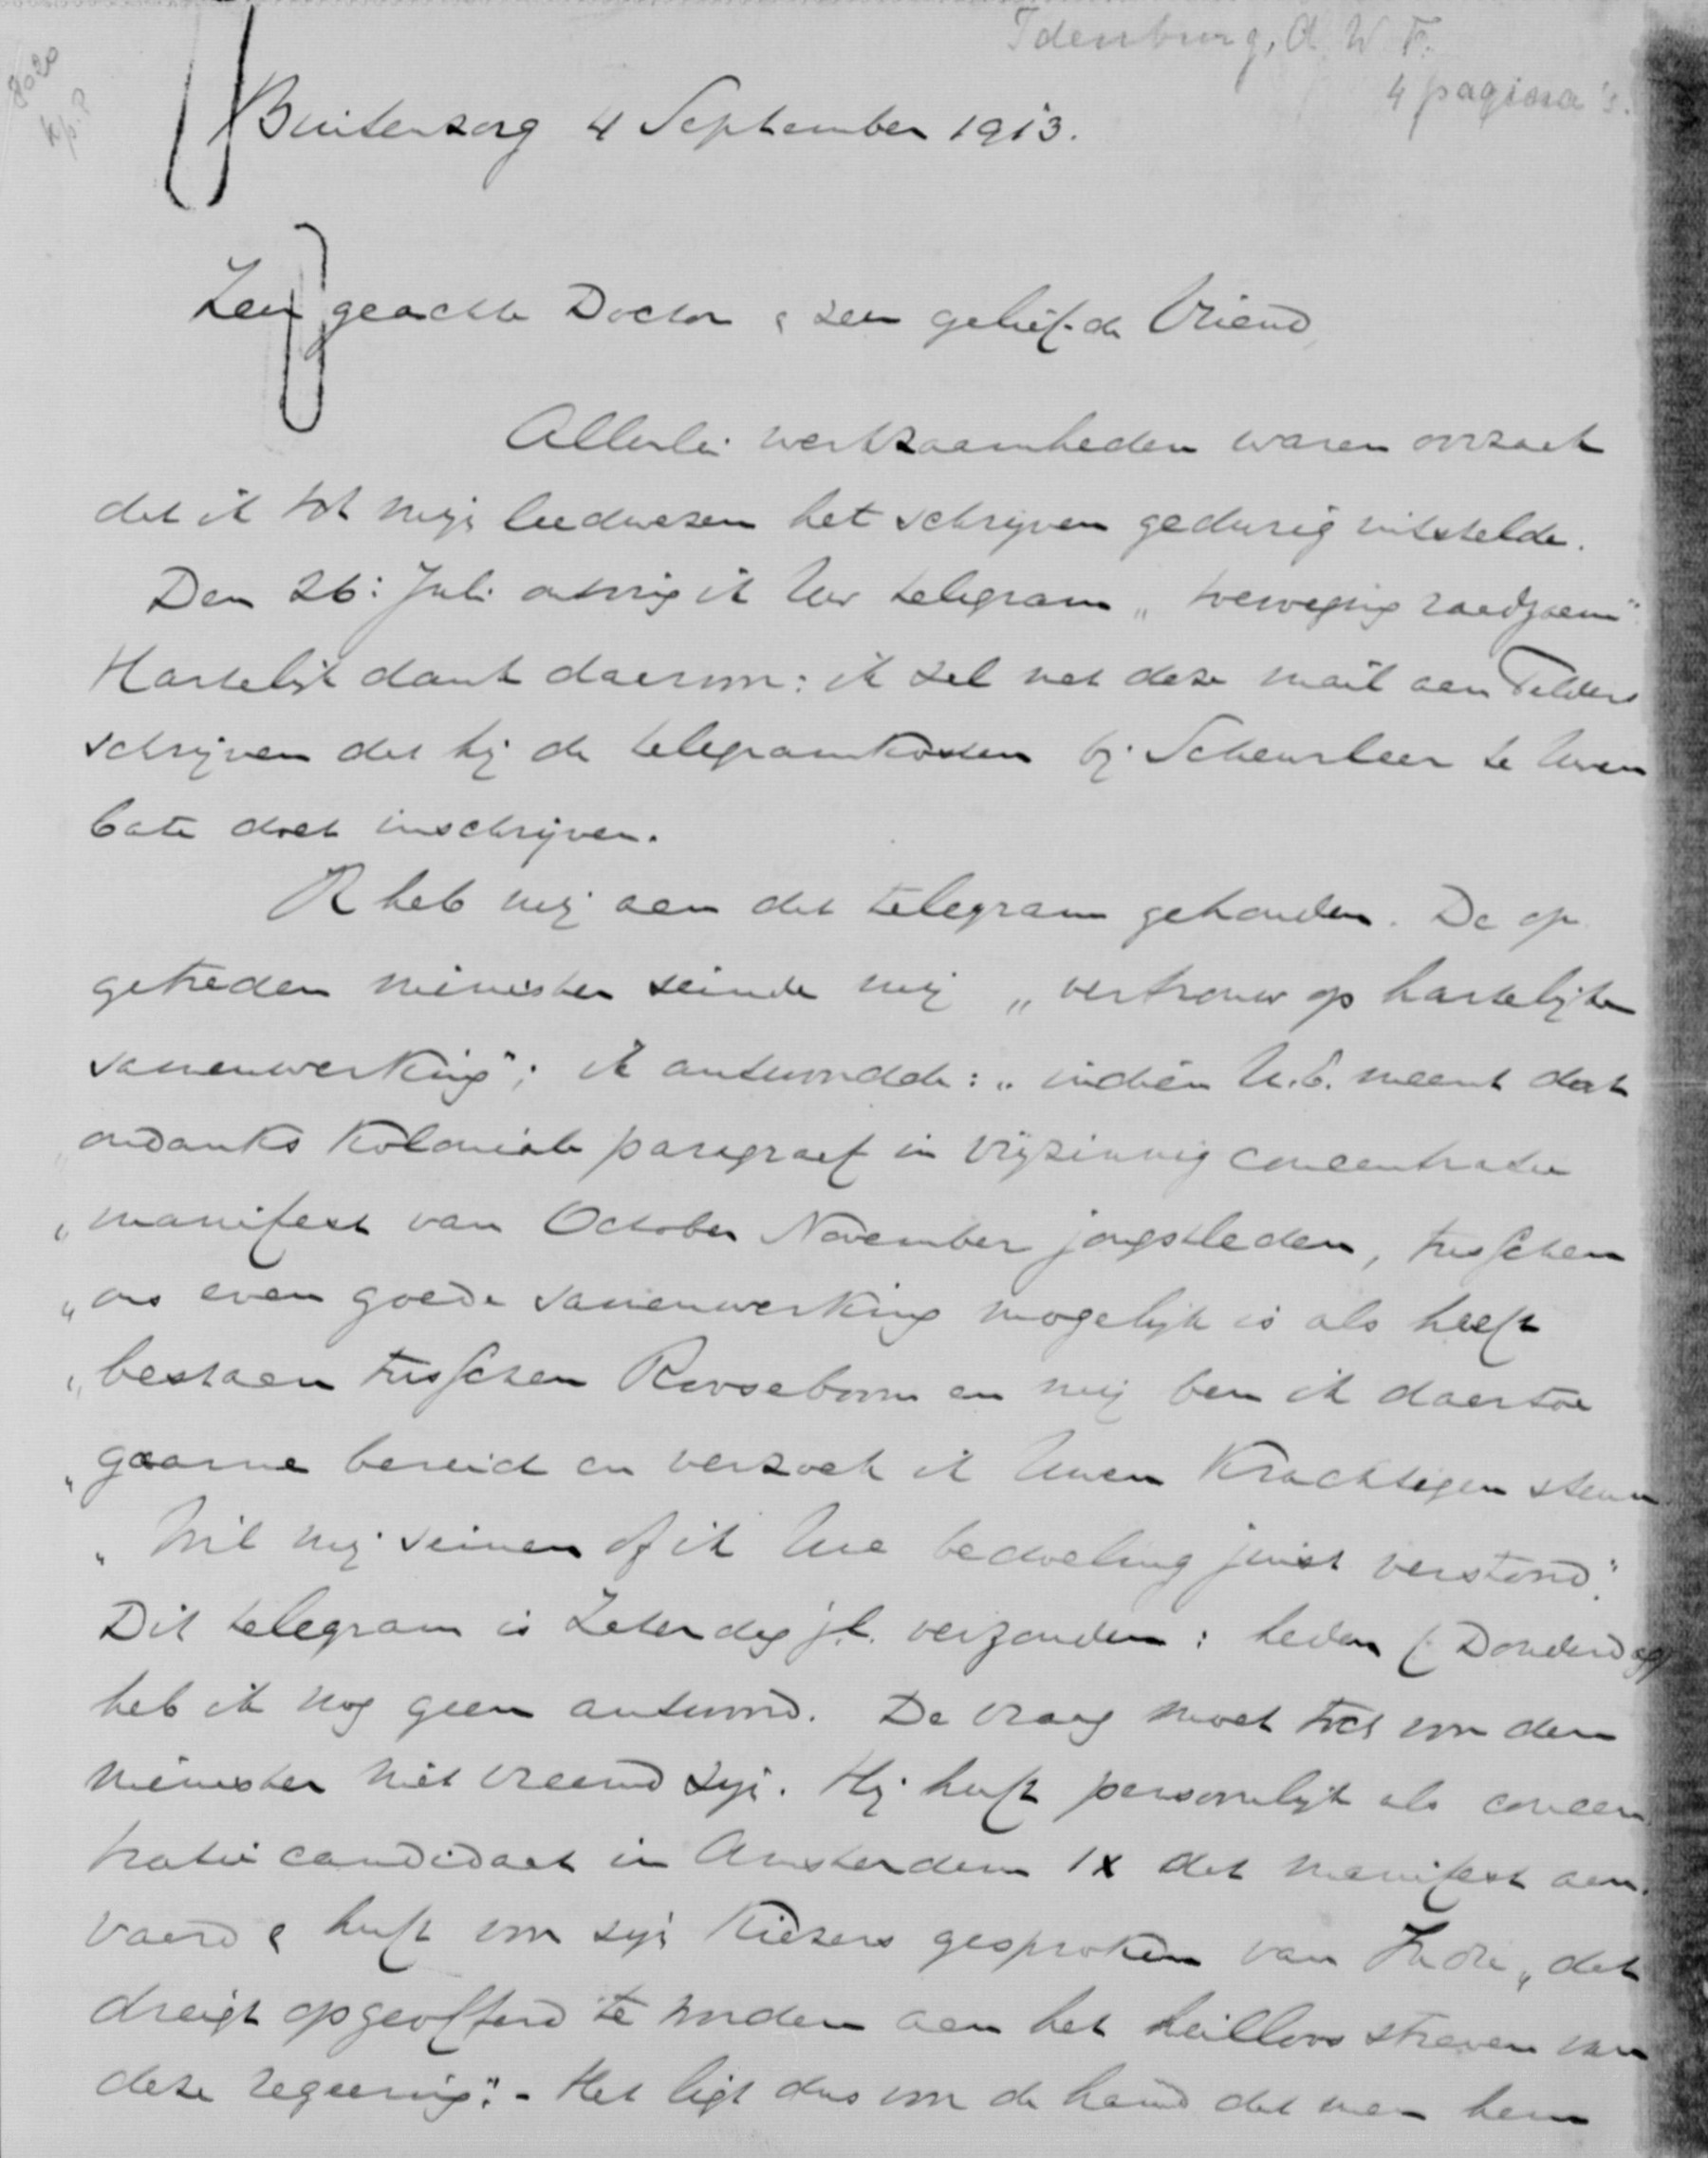 Idenburg, A. W. F.
4 pagina's.
8020
Kp. P
Buitenzorg 4 September 1913.
Zeer geachte Doctor & zeer geliefde Vriend,
Allerlei werkzaamheden waren oorzaak
dat ik tot mijn leedwezen het schrijven gedurig uitstelde.
Den 26: Juli ontving ik Uw telegram „toevoeging raadzaam".
Hartelijk dank daarvoor: ik zal met deze mail aan Telders
schrijven dat hij de telegramkosten bij Scheurleer te Uwen
bate doet inschrijven.
Ik heb mij aan dat telegram gehouden. De op
getreden minister seinde mij „vertrouw op hartelijke
samenwerking"; ik antwoordde: „indien U.E. meent dat
„ondanks koloniale paragraaf in vrijzinnig concentratie
„manifest van October November jongstleden, tusschen
„ons even goede samenwerking mogelijk is als heeft
„bestaan tusschen Rooseboom en mij ben ik daartoe
„gaarne bereid en verzoek ik Uwen krachtigen steun
„Wil mij seinen of ik Uwe bedoeling juist verstond."
Dit telegram is Zaterdag j.l. verzonden: heden (Donderdag)
heb ik nog geen antwoord. De vraag moet toch voor den
minister niet vreemd zijn. Hij heeft persoonlijk als concen
tratie candidaat in Amsterdam IX dat manifest aan-
vaard & heeft voor zijn kiezers gesproken van Indië „dat
dreigt opgeofferd te worden aan het heilloos streven van
deze regeering". - Het ligt dus voor de hand dat men hem